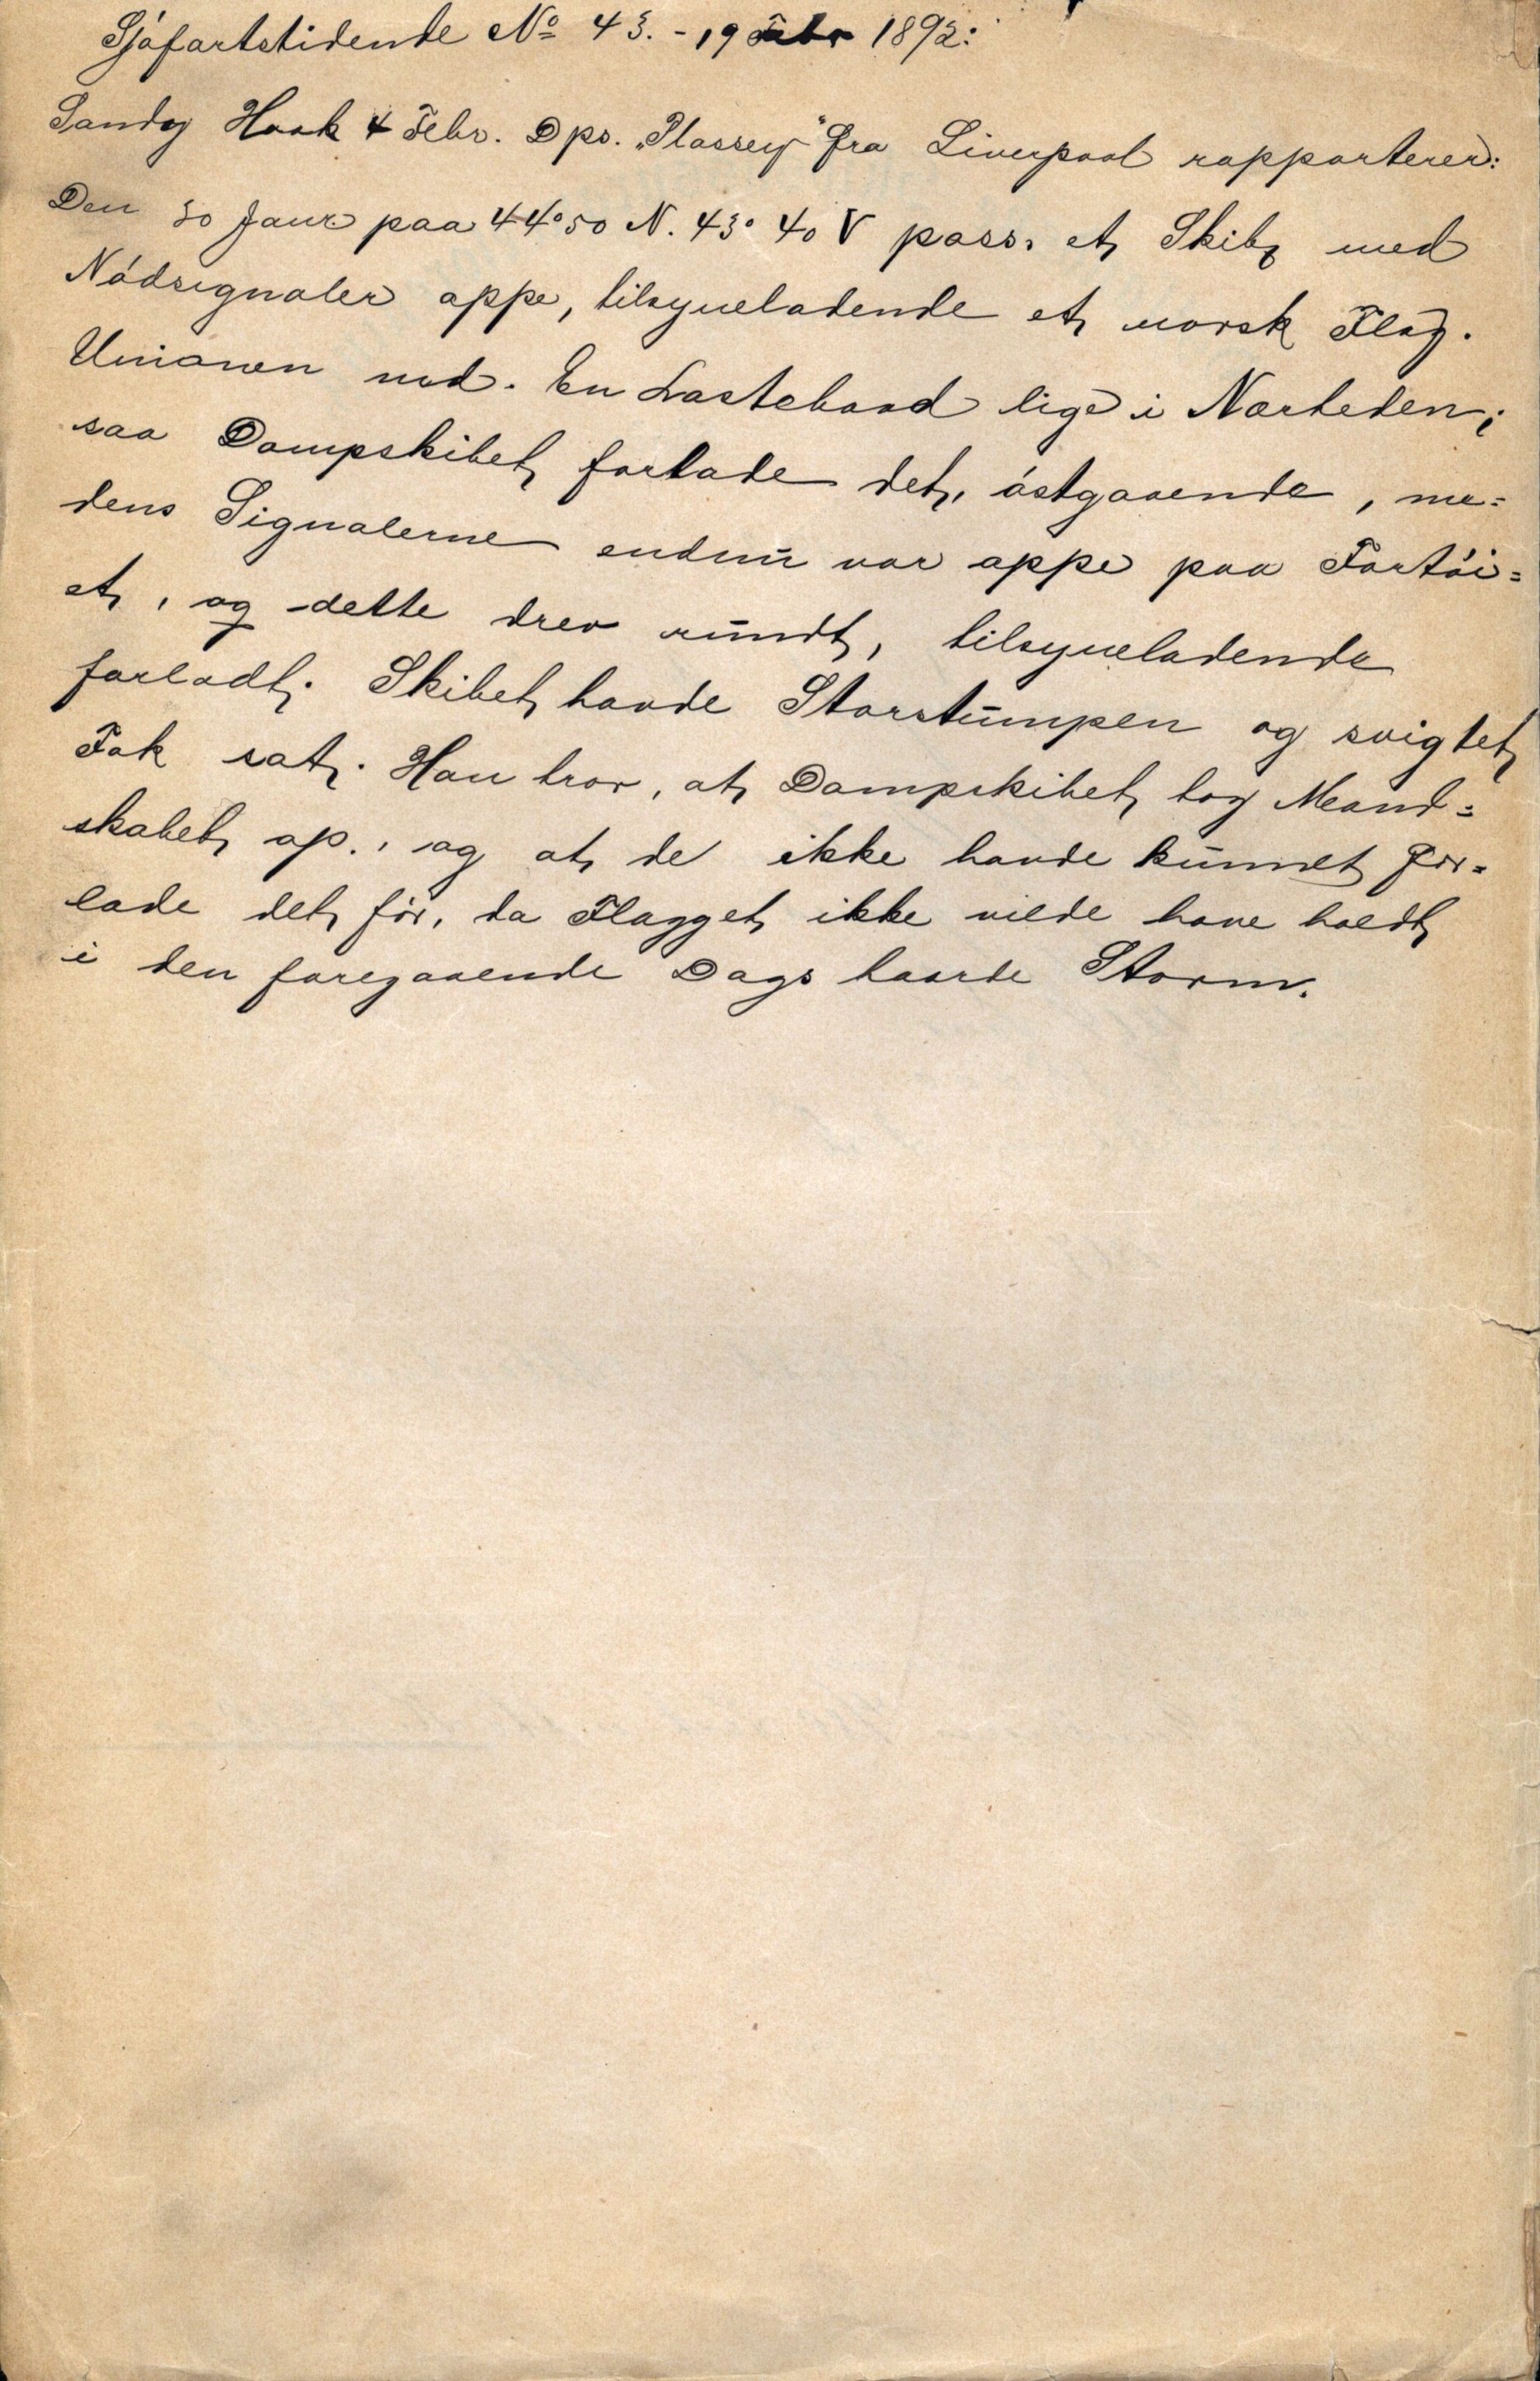 Sjófartstidende No 43. - 19 Febr 1892:
Sandy Hook 4 Febr. Dps. „Plassey" fra Liverpool rapporterer:
Den 30 Janr paa 44° 50 N. 43° 40 V pass. et Skib med
Nódsignaler oppe, tilsyneladende et norsk Flag.
Unionen ned. En Lastebaad lige i Nærheden;
saa Dampskibet forlade det, óstgaaende, me=
dens Signalerne endnu var oppe paa Fartói=
et, og dette drev rundt, tilsyneladende
forladt. Skibet havde Storstumpen og svigtet
Fok sat. Han tror, at Dampskibet tog Mand=
skabet op., og at de ikke havde kunnet for=
lade det fór, da Flagget ikke vilde have holdt
i den foregaaende Dags haarde Storm.